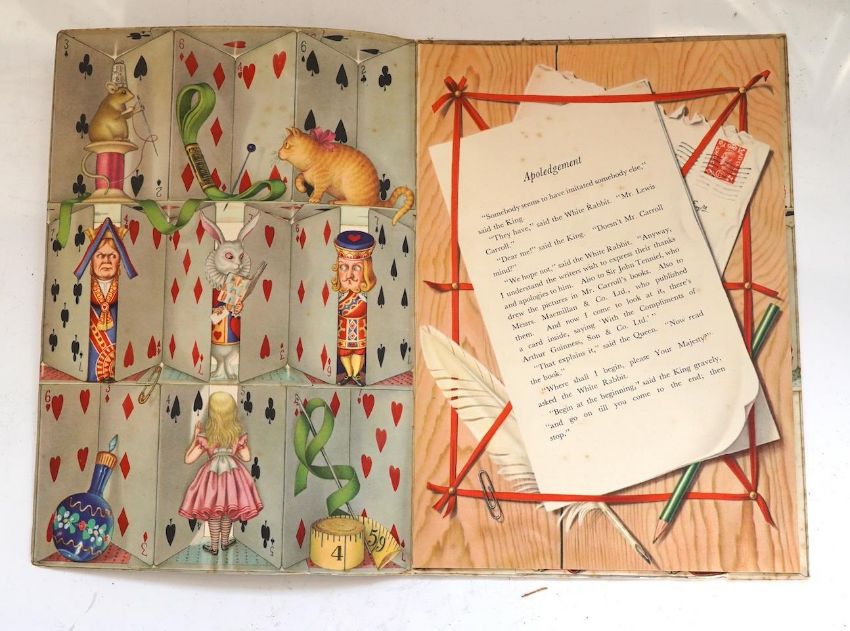 Apoledgement
"Somebody seems to have imitated somebody else,"
said the King.
"They have," said the White Rabbit. "Mr. Lewis
Carroll."
"Dear me!" said the King. "Doesn't Mr Carroll
mind?"
"We hope not," said the White Rabbit. "Anyway,
I understand the writers wish to express their thanks
and apologies to him. Also to Sir John Tenniel, who
drew the pictures in Mr. Carroll's books. Also to
Messrs Macmillan & Co. Ltd., who published
them. And now I come to look at it, there's
a card inside, saying 'With the Compliments of
Arthur Guinness, Son & Co. Ltd.' "
"That explains it," said the Queen. "Now read
the book."
"Where shall I begin, please Your Majesty?"
asked the White Rabbit.
"Begin at the beginning," said the King gravely,
"and go on till you come to the end; then
stop."
3
6
4
6
2
4
59